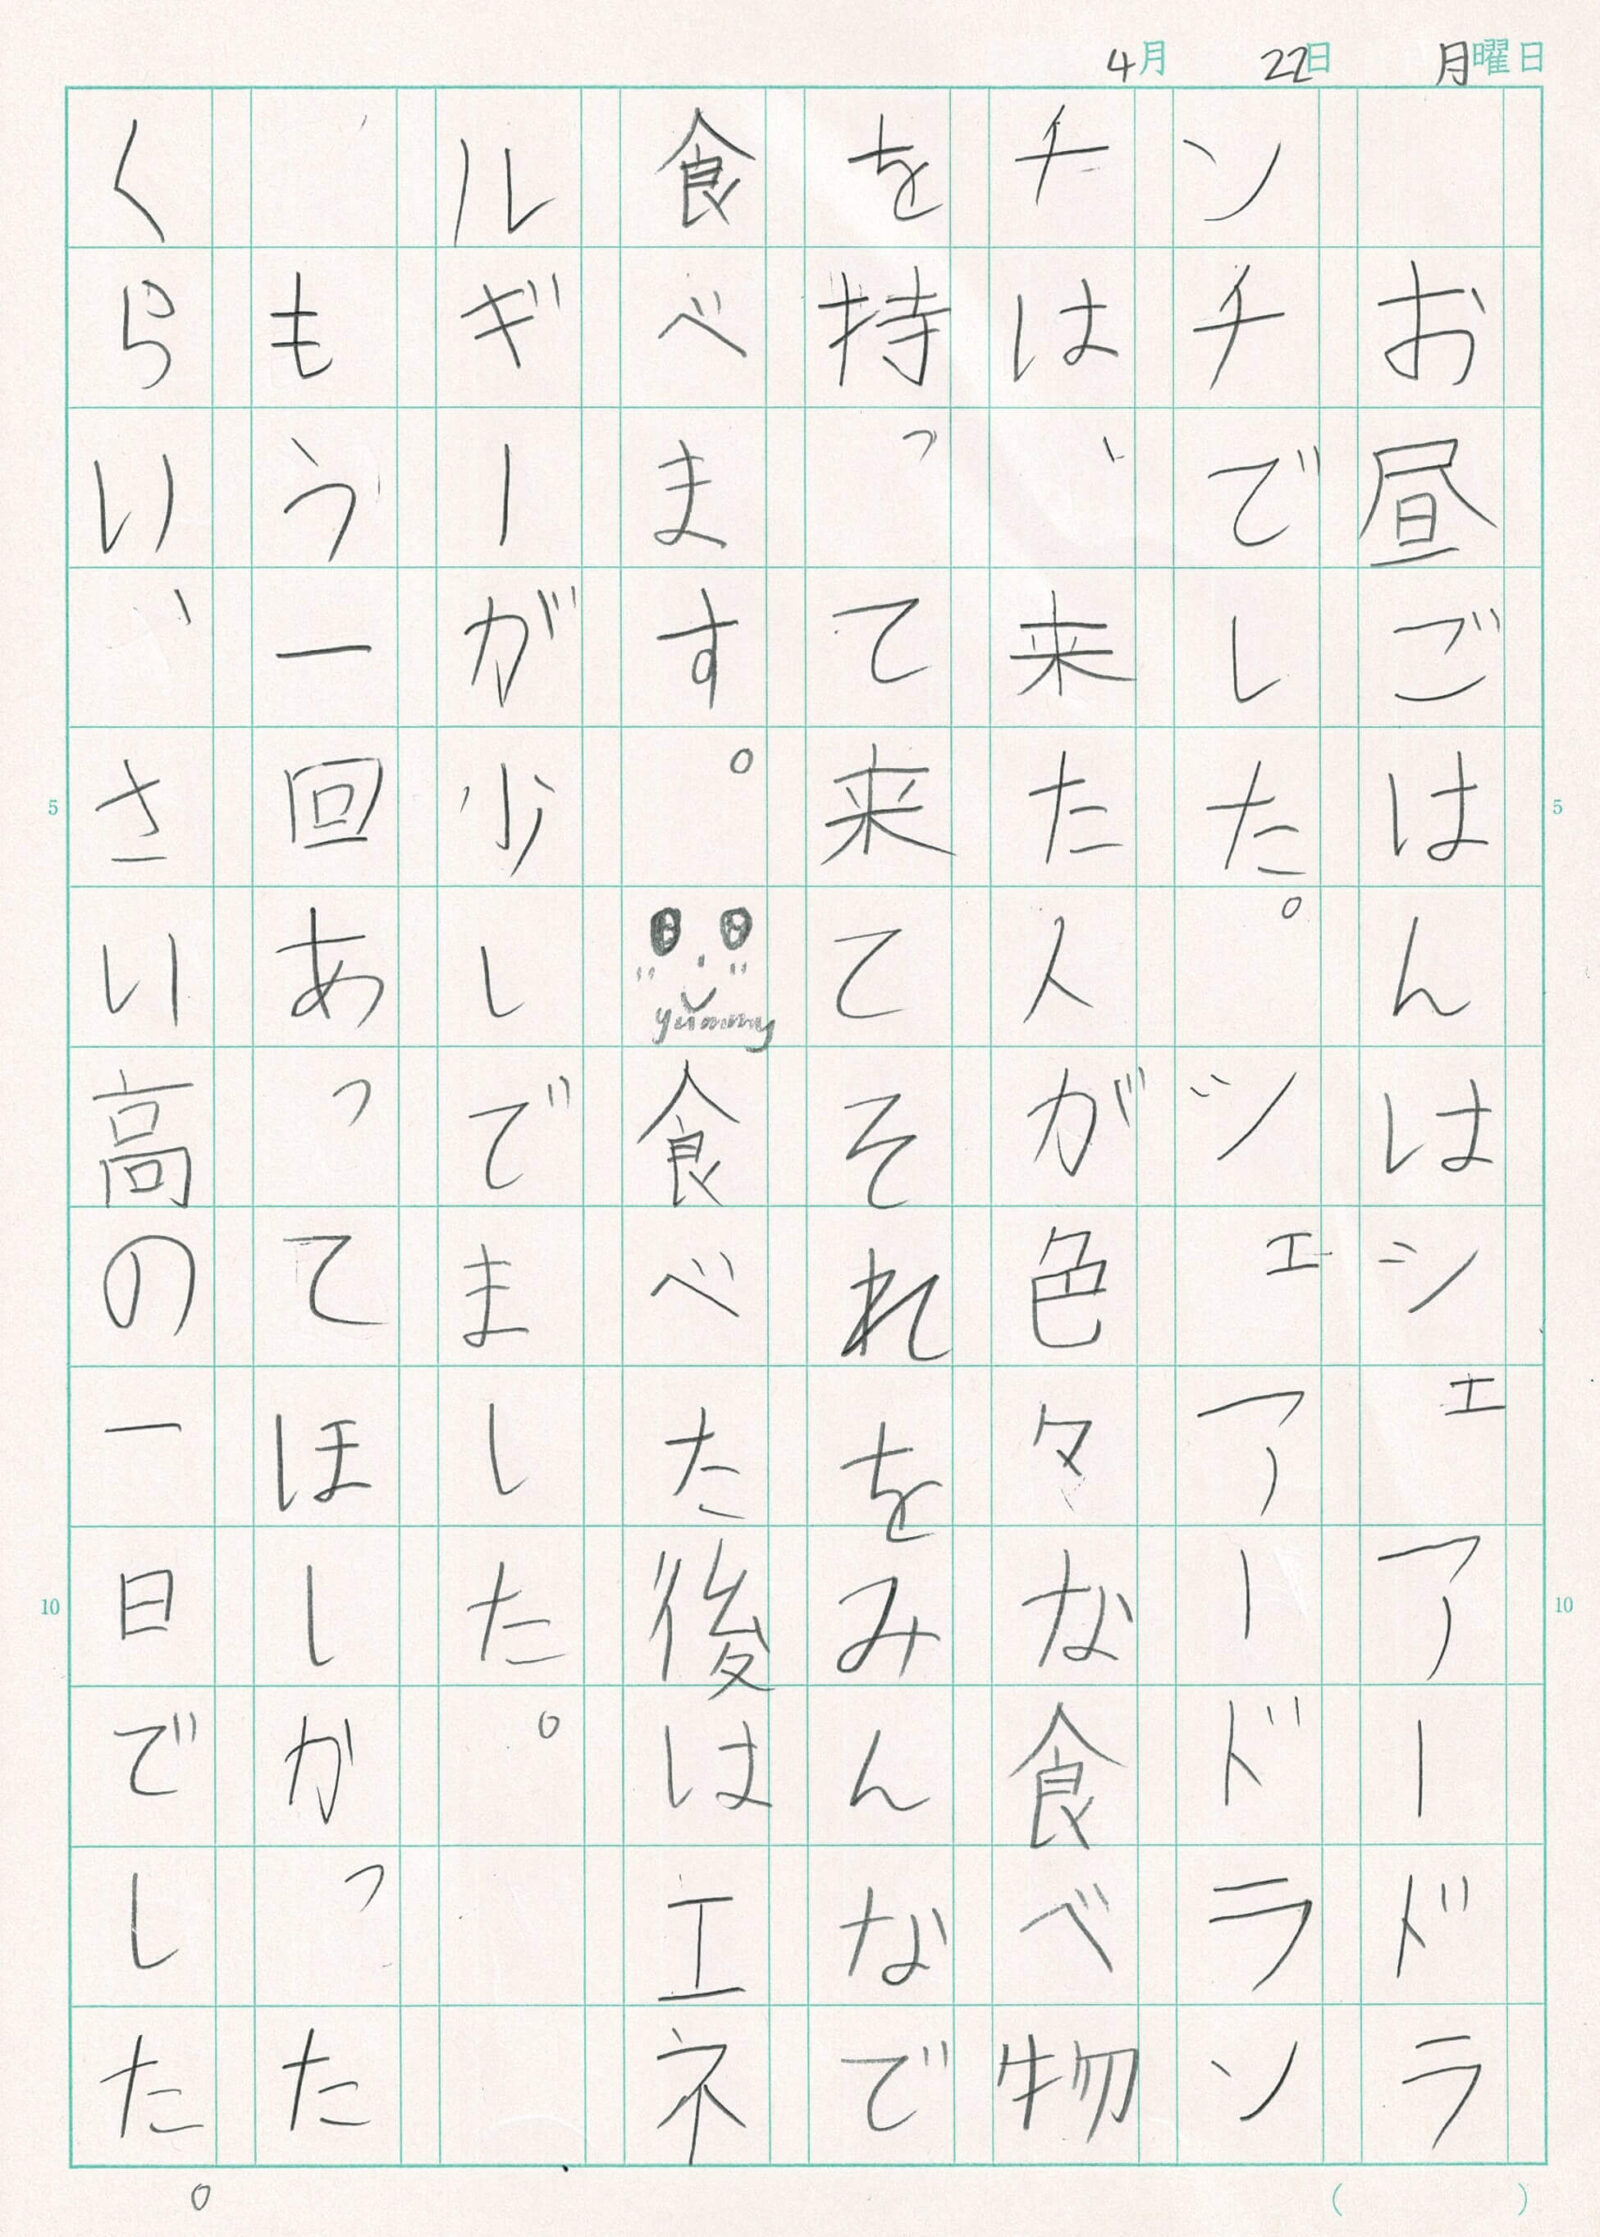 4月 22日 月曜日
お昼ごはんはシェアードラ
ンチでした。シェアードラン
チは、来た人が色々な食べ物
を持って来てそれをみんなで
食べます。yummy食べた後はエネ
ルギーが少しでました。
もう一回あってほしかった
くらい、さい高の一日でした。
5
10
5
10
( )